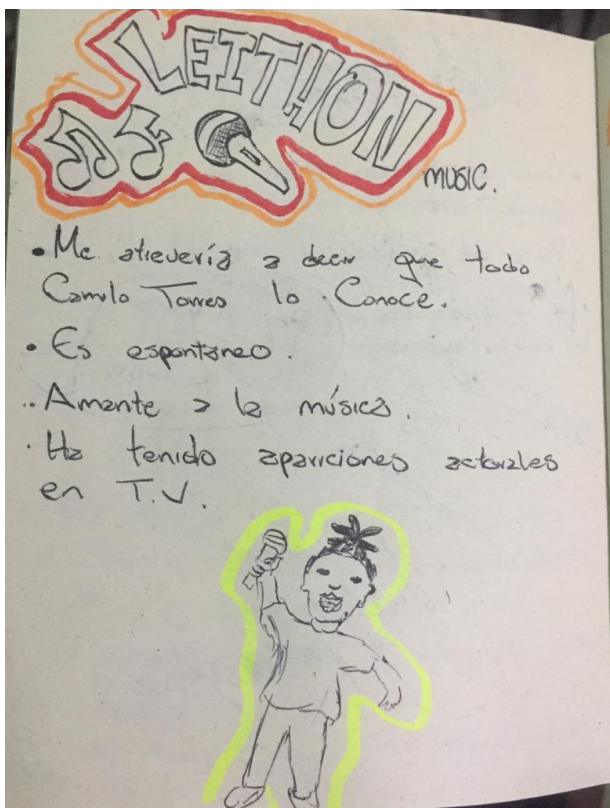 LEITHON
MUSIC.
• Me atrevería a decir que todo
Camilo Torres lo Conoce.
• Es espontaneo.
• Amante a la música.
• Ha tenido apariciones actorales
en T.V.